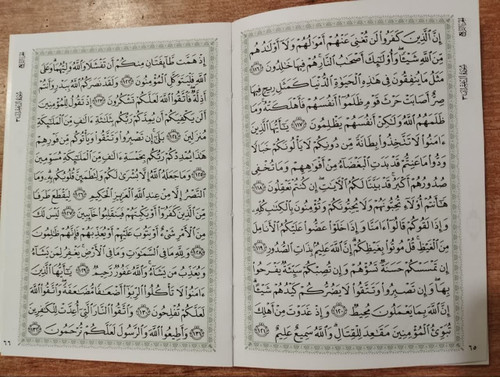 إِنَّ الَّذِينَ كَفَرُوا لَن تُغْنِيَ عَنْهُمْ أَمْوَٰلُهُمْ وَلَا أَوْلَٰدُهُم
مِّنَ اللَّهِ شَيْئًا وَأُولَٰئِكَ أَصْحَٰبُ النَّارِ هُمْ فِيهَا خَٰلِدُونَ ١١٦
مَثَلُ مَا يُنفِقُونَ فِي هَٰذِهِ الْحَيَوٰةِ الدُّنْيَا كَمَثَلِ رِيحٍ فِيهَا
صِرٌّ أَصَابَتْ حَرْثَ قَوْمٍ ظَلَمُوا أَنفُسَهُمْ فَأَهْلَكَتْهُ وَمَا
ظَلَمَهُمُ اللَّهُ وَلَٰكِنْ أَنفُسَهُمْ يَظْلِمُونَ ١١٧ يَٰأَيُّهَا الَّذِينَ
ءَامَنُوا لَا تَتَّخِذُوا بِطَانَةً مِّن دُونِكُمْ لَا يَأْلُونَكُمْ خَبَالًا
وَدُّوا مَا عَنِتُّمْ قَدْ بَدَتِ الْبَغْضَاءُ مِنْ أَفْوَٰهِهِمْ وَمَا تُخْفِي
صُدُورُهُمْ أَكْبَرُ قَدْ بَيَّنَّا لَكُمُ الْآيَٰتِ إِن كُنتُمْ تَعْقِلُونَ ١١٨
هَٰأَنتُمْ أُولَاءِ تُحِبُّونَهُمْ وَلَا يُحِبُّونَكُمْ وَتُؤْمِنُونَ بِالْكِتَٰبِ كُلِّهِ
وَإِذَا لَقُوكُمْ قَالُوا ءَامَنَّا وَإِذَا خَلَوْا عَضُّوا عَلَيْكُمُ الْأَنَامِلَ
مِنَ الْغَيْظِ قُلْ مُوتُوا بِغَيْظِكُمْ إِنَّ اللَّهَ عَلِيمٌ بِذَاتِ الصُّدُورِ ١١٩
إِن تَمْسَسْكُمْ حَسَنَةٌ تَسُؤْهُمْ وَإِن تُصِبْكُمْ سَيِّئَةٌ يَفْرَحُوا
بِهَا وَإِن تَصْبِرُوا وَتَتَّقُوا لَا يَضُرُّكُمْ كَيْدُهُمْ شَيْئًا
إِنَّ اللَّهَ بِمَا يَعْمَلُونَ مُحِيطٌ ١٢٠ وَإِذْ غَدَوْتَ مِنْ أَهْلِكَ
تُبَوِّئُ الْمُؤْمِنِينَ مَقَٰعِدَ لِلْقِتَالِ وَاللَّهُ سَمِيعٌ عَلِيمٌ ١٢١
٦٥
إِذْ هَمَّت طَّائِفَتَانِ مِنكُمْ أَن تَفْشَلَا وَاللَّهُ وَلِيُّهُمَا وَعَلَى
اللَّهِ فَلْيَتَوَكَّلِ الْمُؤْمِنُونَ ١٢٢ وَلَقَدْ نَصَرَكُمُ اللَّهُ بِبَدْرٍ وَأَنتُمْ
أَذِلَّةٌ فَاتَّقُوا اللَّهَ لَعَلَّكُمْ تَشْكُرُونَ ١٢٣ إِذْ تَقُولُ لِلْمُؤْمِنِينَ
أَلَن يَكْفِيَكُمْ أَن يُمِدَّكُمْ رَبُّكُم بِثَلَٰثَةِ ءَالَٰفٍ مِّنَ الْمَلَٰئِكَةِ
مُنزَلِينَ ١٢٤ بَلَىٰ إِن تَصْبِرُوا وَتَتَّقُوا وَيَأْتُوكُم مِّن فَوْرِهِمْ
هَٰذَا يُمْدِدْكُمْ رَبُّكُم بِخَمْسَةِ ءَالَٰفٍ مِّنَ الْمَلَٰئِكَةِ مُسَوِّمِينَ
١٢٥ وَمَا جَعَلَهُ اللَّهُ إِلَّا بُشْرَىٰ لَكُمْ وَلِتَطْمَئِنَّ قُلُوبُكُم بِهِ وَمَا
النَّصْرُ إِلَّا مِنْ عِندِ اللَّهِ الْعَزِيزِ الْحَكِيمِ ١٢٦ لِيَقْطَعَ طَرَفًا
مِّنَ الَّذِينَ كَفَرُوا أَوْ يَكْبِتَهُمْ فَيَنقَلِبُوا خَائِبِينَ ١٢٧ لَيْسَ لَكَ
مِنَ الْأَمْرِ شَيْءٌ أَوْ يَتُوبَ عَلَيْهِمْ أَوْ يُعَذِّبَهُمْ فَإِنَّهُمْ ظَٰلِمُونَ
١٢٨ وَلِلَّهِ مَا فِي السَّمَٰوَٰتِ وَمَا فِي الْأَرْضِ يَغْفِرُ لِمَن يَشَاءُ
وَيُعَذِّبُ مَن يَشَاءُ وَاللَّهُ غَفُورٌ رَّحِيمٌ ١٢٩ يَٰأَيُّهَا الَّذِينَ
ءَامَنُوا لَا تَأْكُلُوا الرِّبَوٰا أَضْعَٰفًا مُّضَٰعَفَةً وَاتَّقُوا اللَّهَ
لَعَلَّكُمْ تُفْلِحُونَ ١٣٠ وَاتَّقُوا النَّارَ الَّتِي أُعِدَّتْ لِلْكَٰفِرِينَ
١٣١ وَأَطِيعُوا اللَّهَ وَالرَّسُولَ لَعَلَّكُمْ تُرْحَمُونَ ١٣٢
٦٦